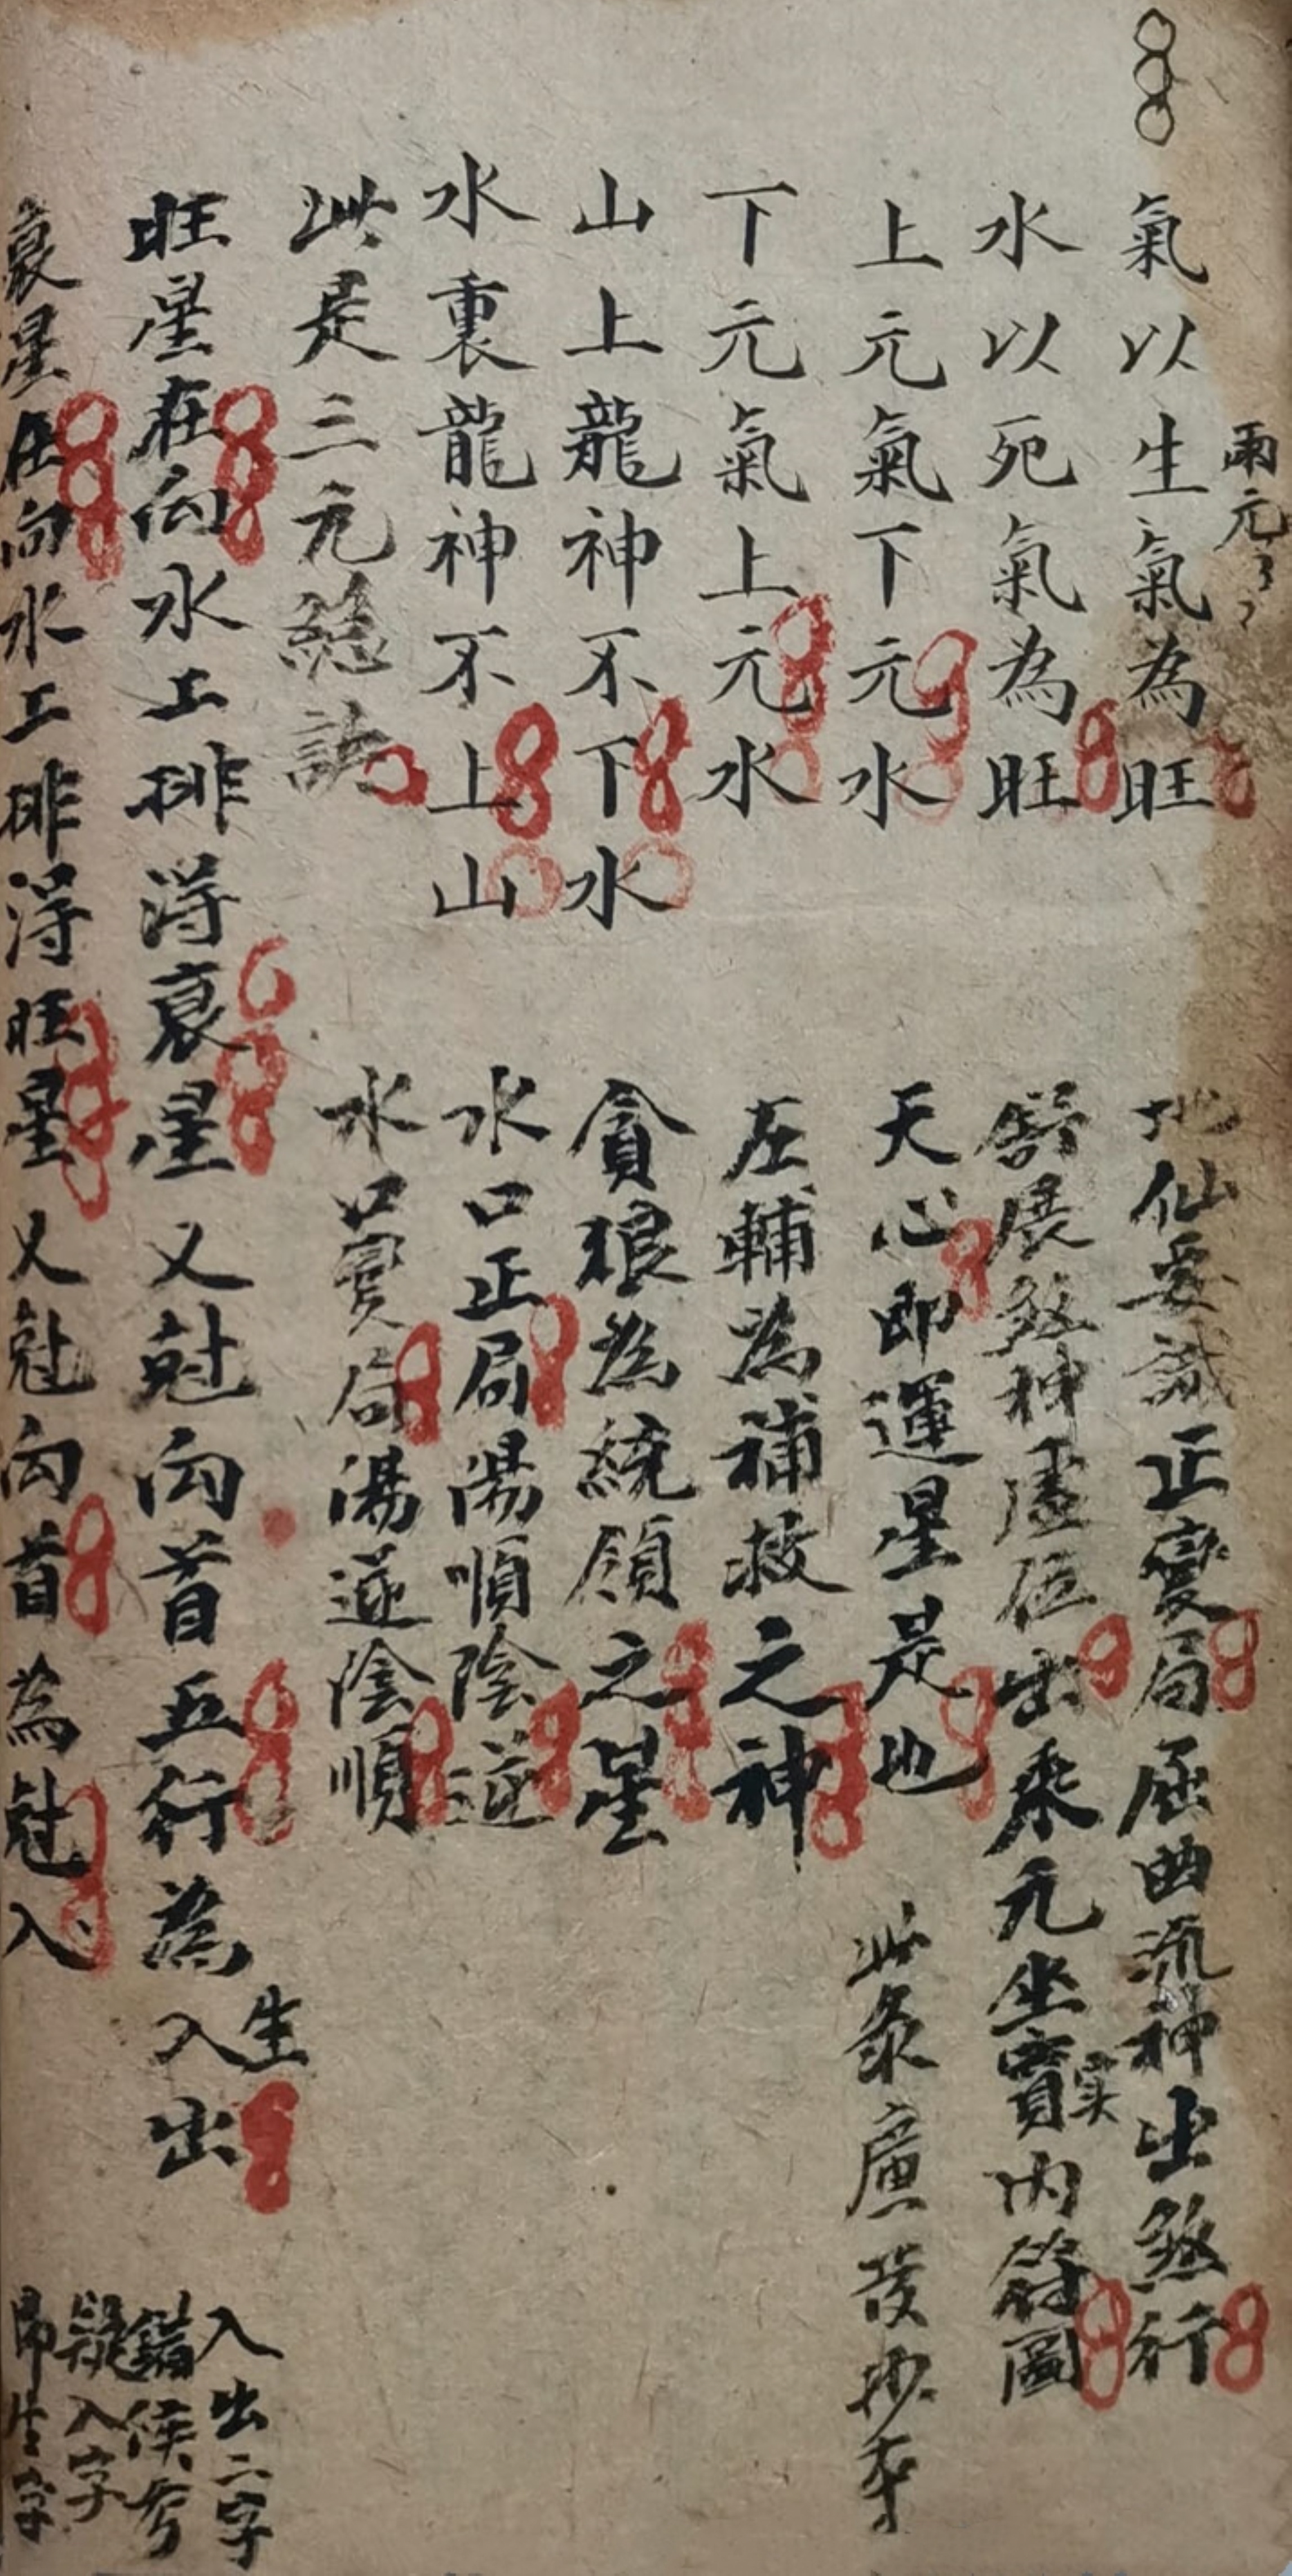 兩元
氣以生氣為旺
水以死氣為旺
上元氣下元水
下元氣上元水
山上龍神不下水
水裏龍神不上山
此是三元總訣
地仙要識正變局屈曲流神出煞行
舒展煞神虛位出乘元坐寳内符圖
实
天心即運星是也
左輔為補救之神
貪狼為統領之星
水口正局陽順陰逆
水口變局陽逆陰順
此彔廬發抄本
旺星在向水上排淂衰星又尅向首五行為入出
生
衰星在向水上排淂旺星又尅向首為尅入
入出二字
錯俟考
疑入字
即生字